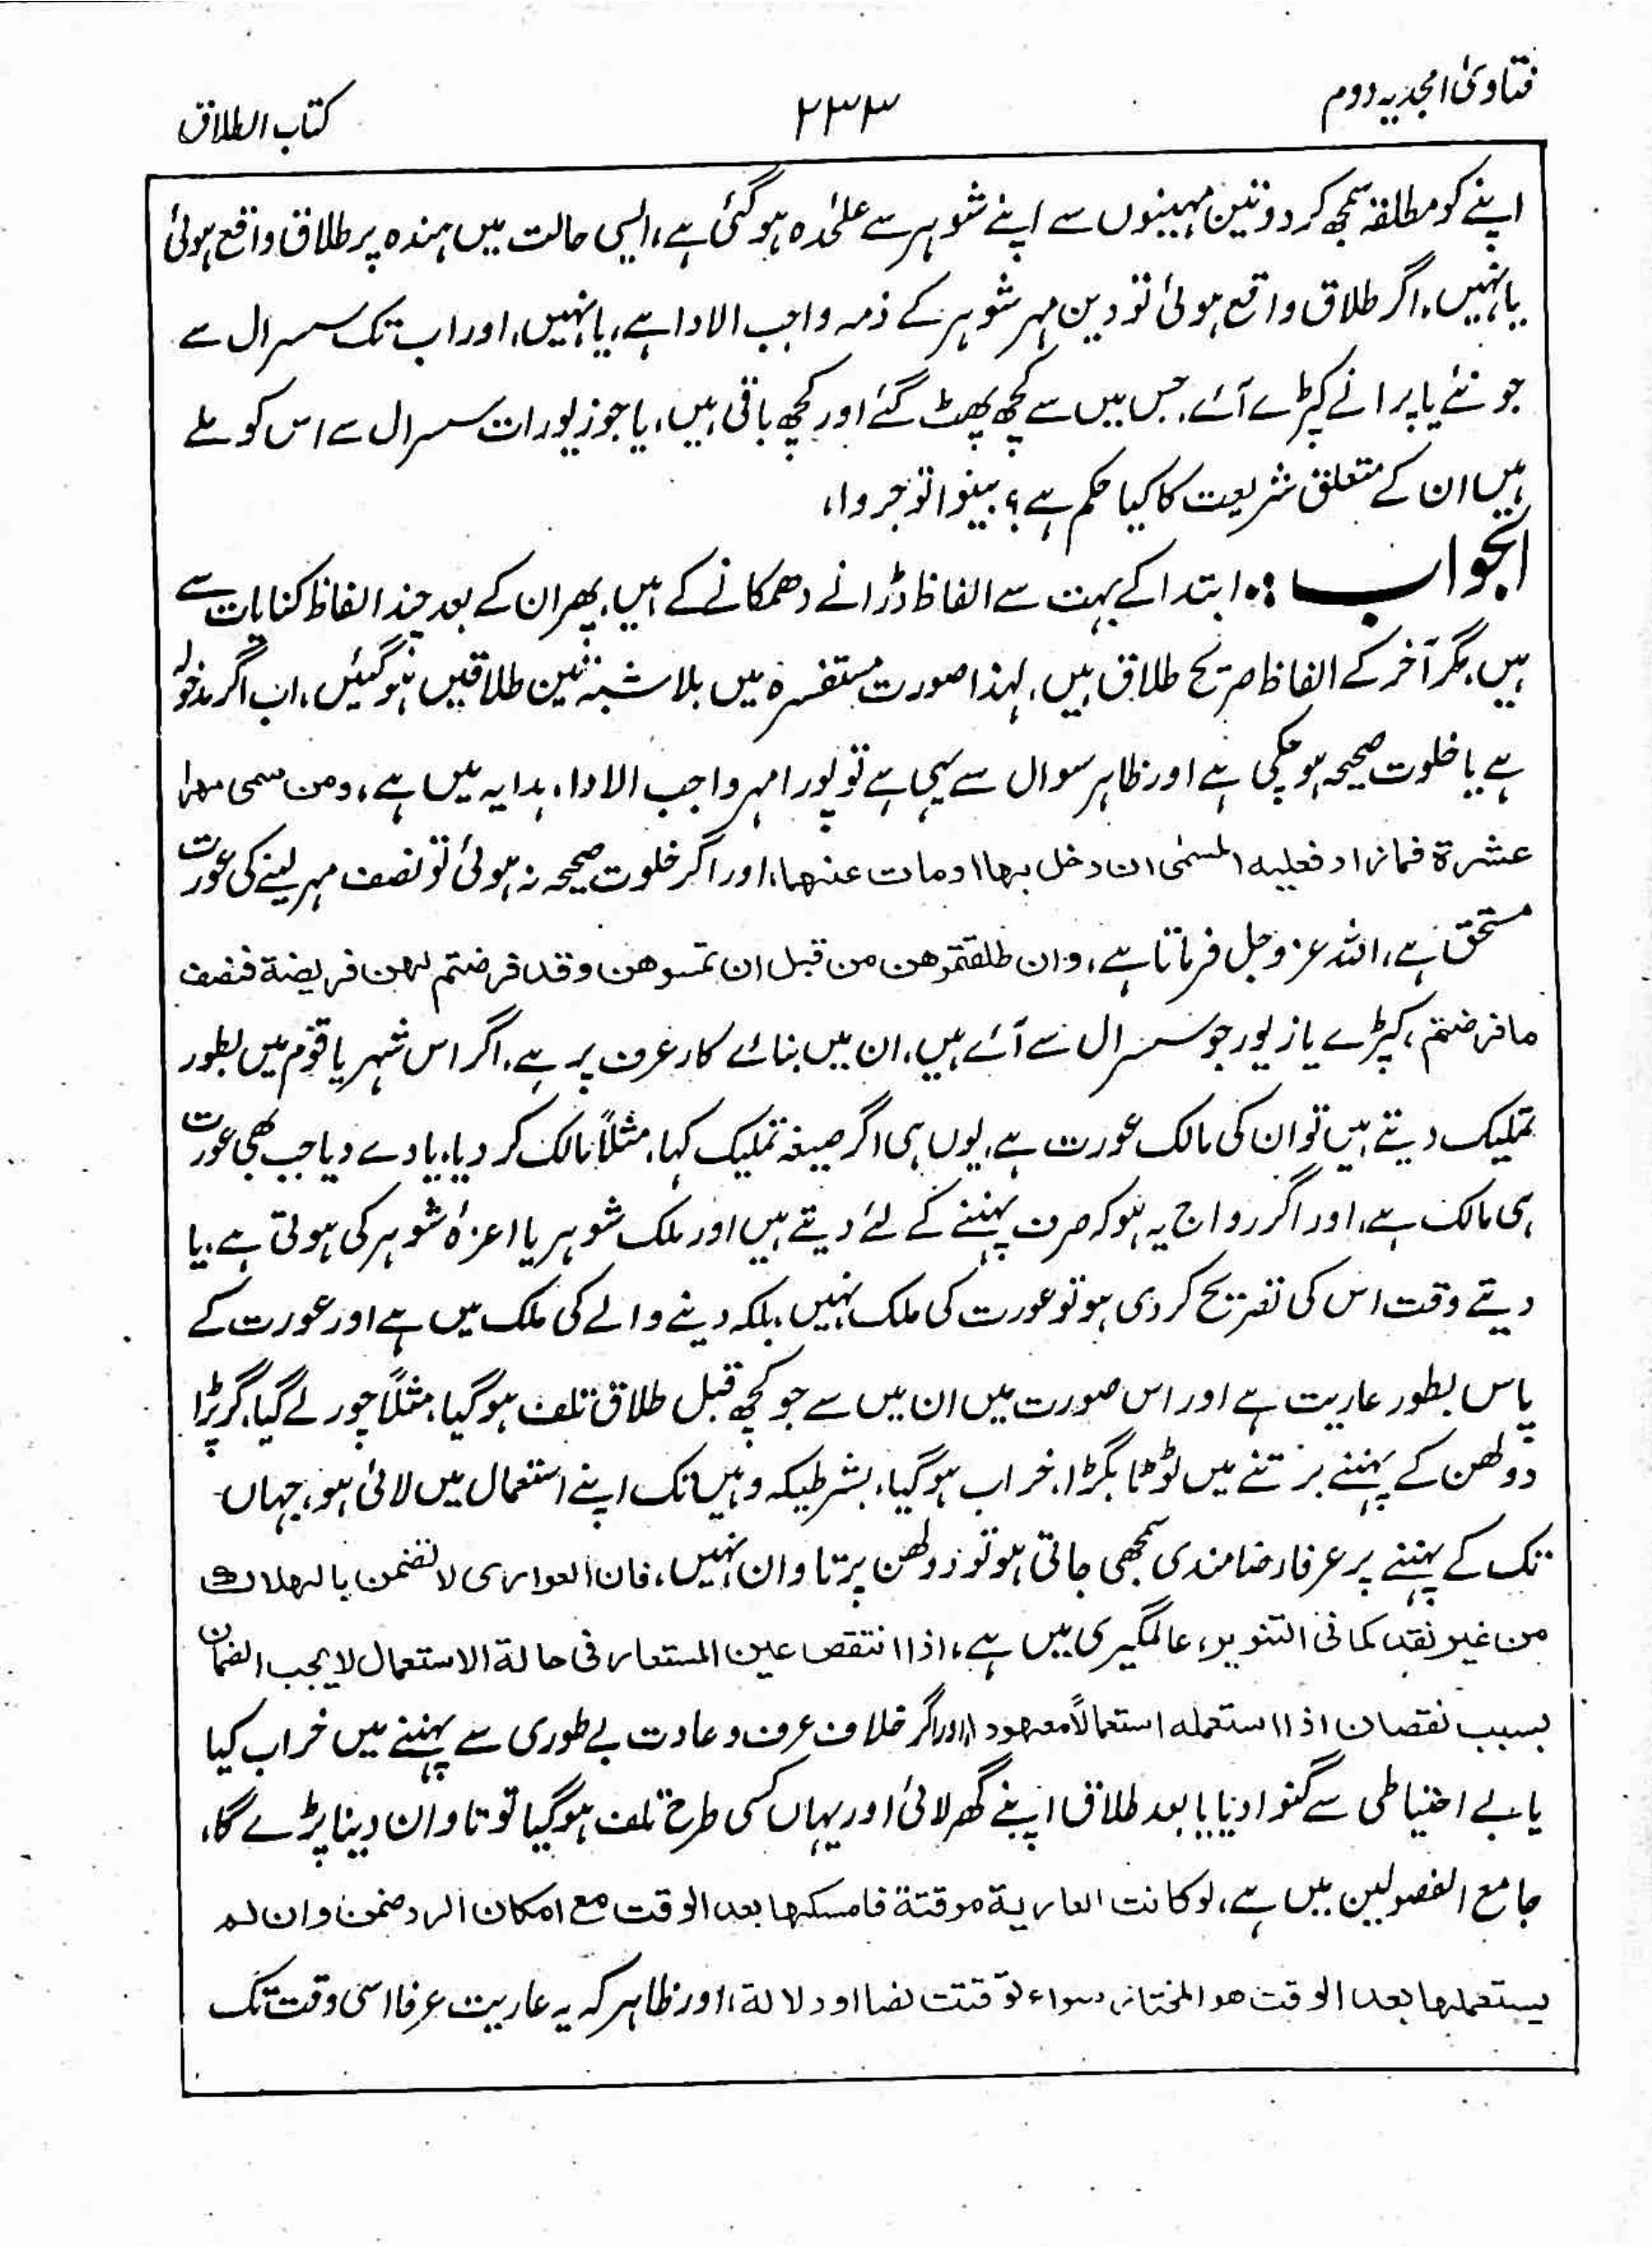 فتاویٰ امجدیہ دوم
۲۳۳
کتاب الطلاق
اپنے کو مطلقہ سمجھ کر دو تین مہینوں سے اپنے شوہر سے علیٰحدہ ہوگئی ہے، ایسی حالت میں ہندہ پر طلاق واقع ہوئی
یا نہیں، اگر طلاق واقع ہوئی تو دین مہر شوہر کے ذمہ واجب الادا ہے، یا نہیں، اور اب تک سسرال سے
جو نئے یا پرانے کپڑے آئے، جس میں سے کچھ پھٹ گئے اور کچھ باقی ہیں، یا جو زیورات سسرال سے اس کو ملے
ہیں ان کے متعلق شریعت کا کیا حکم ہے؟ بینوا توجروا،
الجواب :۔ ابتدا کے بہت سے الفاظ ڈرانے دھمکانے کے ہیں، پھر ان کے بعد چند الفاظ کنایات سے
ہیں، مگر آخر کے الفاظ صریح طلاق ہیں، لہذا صورت مستفسرہ میں بلاشبہ تین طلاقیں ہوگئیں، اب اگر مدخولہ
ہے یا خلوت صحیحہ ہوچکی ہے اور ظاہر سوال سے یہی ہے تو پورا مہر واجب الادا، ہدایہ میں ہے، ومن سمی مهرا
عشرۃ فمازاد فعلیه المسمٰی ان دخل بها او مات عنها، اور اگر خلوت صحیحہ نہ ہوئی تو نصف مہر لینے کی عورت
مستحق ہے، اللہ عزوجل فرماتا ہے، وان طلقتموهن من قبل ان تمسوهن وقد فرضتم لهن فریضة فنصف
ما فرضتم، کپڑے یا زیور جو سسرال سے آئے ہیں، ان میں بنائے کار عرف پر ہے، اگر اس شہر یا قوم میں بطور
تملیک دیتے ہیں تو ان کی مالک عورت ہے، یوں ہی اگر صیغہ تملیک کہا، مثلاً مالک کر دیا، یا دے دیا جب بھی عورت
ہی مالک ہے، اور اگر رواج یہ ہو کہ صرف پہننے کے لئے دیتے ہیں اور ملک شوہر یا اعزۂ شوہر کی ہوتی ہے، یا
دیتے وقت اس کی تصریح کر دی ہو تو عورت کی ملک نہیں، بلکہ دینے والے کی ملک میں ہے اور عورت کے
پاس بطور عاریت ہے اور اس صورت میں ان میں سے جو کچھ قبل طلاق تلف ہوگیا، مثلاً چور لے گیا، گر پڑا
دولھن کے پہننے برتنے میں ٹوٹا بگڑا، خراب ہوگیا، بشرطیکہ وہیں تک اپنے استعمال میں لائی ہو، جہاں
تک کے پہننے پر عرفا رضامندی سمجھی جاتی ہو تو دولھن پر تاوان نہیں، فان العواری لا تضمن بالهلاك
من غیر تعد کما فی التنویر، عالمگیری میں ہے، اذا انتقص عین المستعار فی حالة الاستعمال لا یجب الضمان
بسبب نقصان اذا استعمله استعمالاً معهودا، اور اگر خلاف عرف و عادت بے طوری سے پہننے میں خراب کیا
یا بے احتیاطی سے گنوا دیا یا بعد طلاق اپنے گھر لائی اور یہاں کسی طرح تلف ہوگیا تو تاوان دینا پڑے گا،
جامع الفصولین میں ہے، لو کانت العاریة موقتة فامسکها بعد الوقت مع امکان الرد ضمن وان لم
یستعملها بعد الوقت هو المختار، سواء توقتت نصا او دلالة، اور ظاہر کہ یہ عاریت عرفا اسی وقت تک